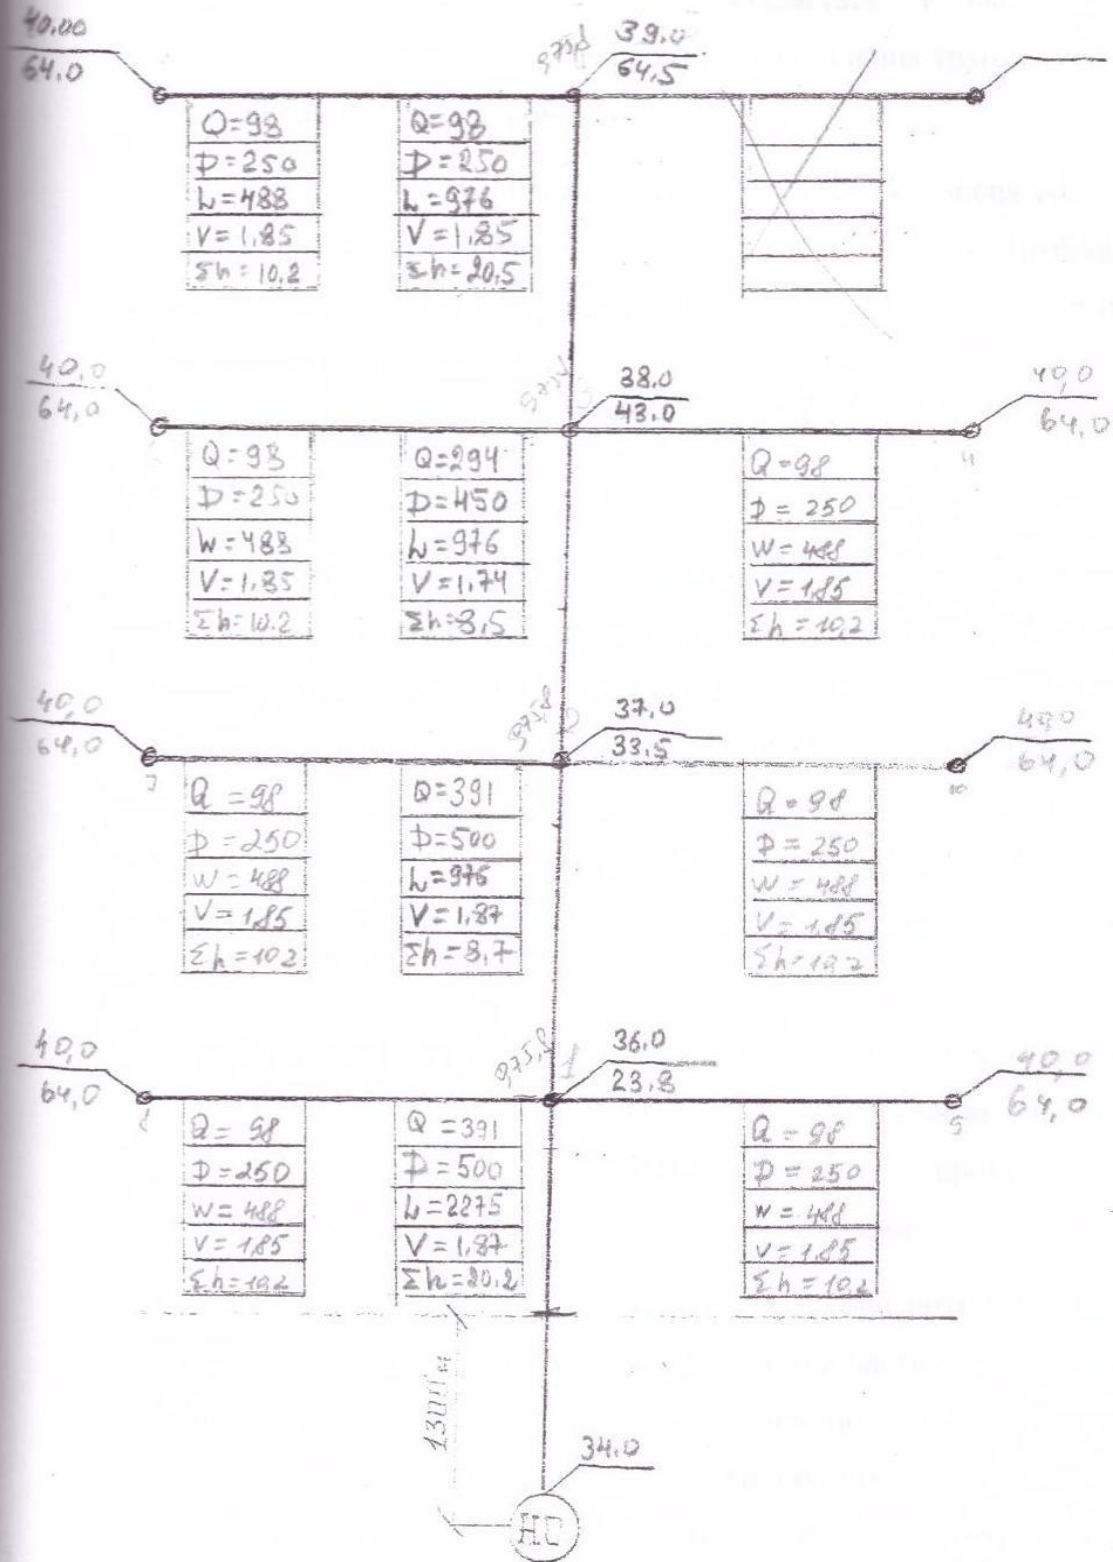 40.00
64.0
975,8
39.0
64.5
Q=98
D=250
L=488
V=1,85
Σh=10,2
Q=98
D=250
L=976
V=1,85
Σh=20,5
40,0
64,0
38.0
43.0
40,0
64,0
Q=98
D=250
W=488
V=1,85
Σh=10.2
Q=294
D=450
L=976
V=1,74
Σh=8,5
Q=98
D=250
W=488
V=1,85
Σh=10,2
40,0
64,0
975,8
37,0
33,5
40,0
64,0
10
Q=98
D=250
W=488
V=1,85
Σh=10 2
Q=391
D=500
L=976
V=1,87
Σh=8,7
Q=98
D=250
W=488
V=1,85
Σh=10,2
40,0
64,0
975,8
1
36.0
23.8
40,0
64,0
9
Q=98
D=250
W=488
V=1,85
Σh=10,2
Q=391
D=500
L=2275
V=1,87
Σh=20,2
Q=98
D=250
W=488
V=1,85
Σh=10,2
1300м
34.0
НС